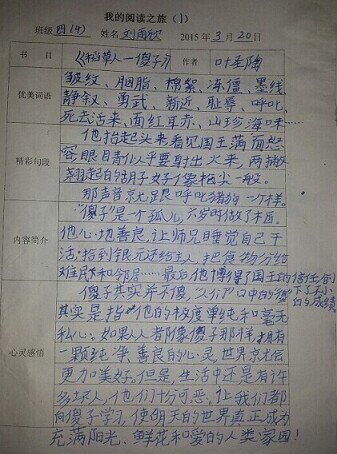 我的阅读之旅（1）
班级 四(4) 姓名 刘雨欣 2015年3月20日
书目 《稻草人—傻子》 作者 叶圣陶
优美词语
皱纹、胭脂、棉絮、冻僵、墨线
静寂、勇武、新近、耻辱、呼叱
死去活来、面红耳赤、山珍海味……
精彩句段
他抬起头来看见国王满面怒
容眼目青仿乎要射出火来，两撇
翘起的胡子好像枪尖一般。
那声音就是呼叱猪狗一个样。
内容简介
“傻子”是个孤儿，六岁时做了木匠，
他心地善良，让师兄睡觉自己干
活。拾到银元还给主人，把食物分给
难民和邻居……最后他博得了国王的信任创
下了不小的成绩
心灵感悟
傻子其实并不傻，人们口中的“傻”
其实是指他的极度单纯和毫无
私心。如果人人都像傻子那样，拥有
一颗纯净善良的心灵，世界就会
更加美好。但是，生活中还是有许
多坏人，他们十分可恶，让我们都
向傻子学习，使明天的世界真正成为
充满阳光、鲜花和爱的人类家园！